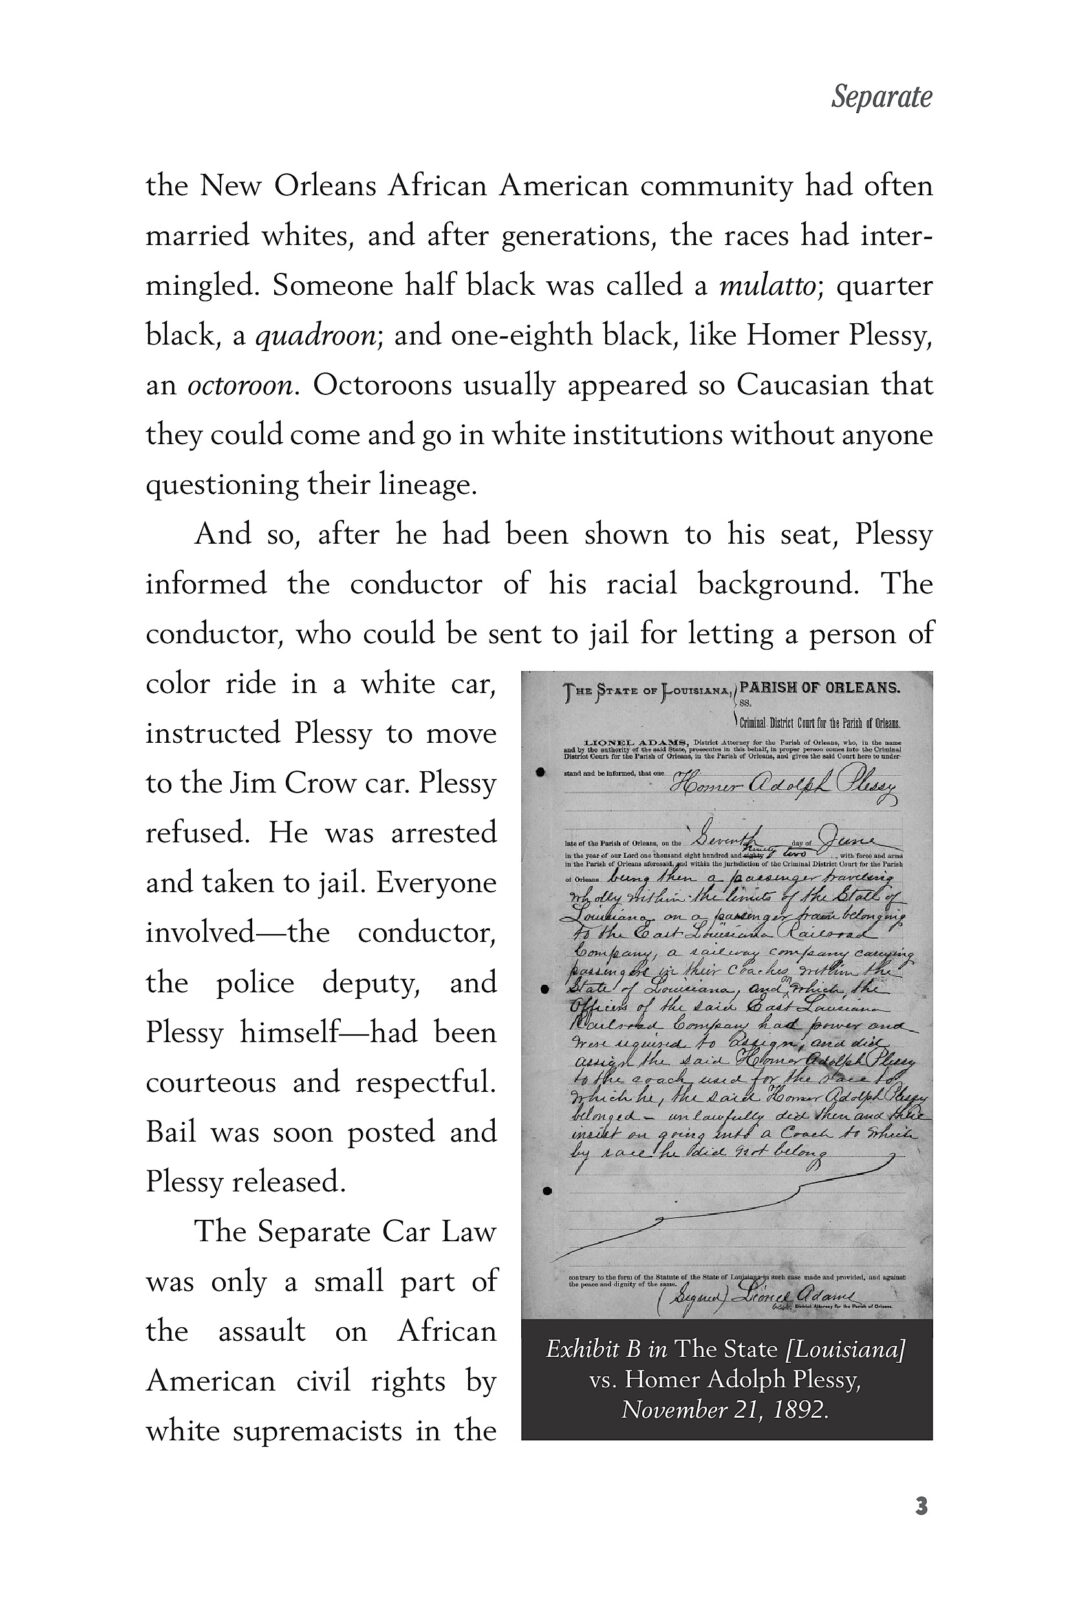 Separate
the New Orleans African American community had often
married whites, and after generations, the races had inter-
mingled. Someone half black was called a mulatto; quarter
black, a quadroon; and one-eighth black, like Homer Plessy,
an octoroon. Octoroons usually appeared so Caucasian that
they could come and go in white institutions without anyone
questioning their lineage.
And so, after he had been shown to his seat, Plessy
informed the conductor of his racial background. The
conductor, who could be sent to jail for letting a person of
color ride in a white car,
instructed Plessy to move
to the Jim Crow car. Plessy
refused. He was arrested
and taken to jail. Everyone
involved—the conductor,
the police deputy, and
Plessy himself—had been
courteous and respectful.
Bail was soon posted and
Plessy released.
The Separate Car Law
was only a small part of
the assault on African
American civil rights by
white supremacists in the
THE STATE OF LOUISIANA, PARISH OF ORLEANS.
SS.
Criminal District Court for the Parish of Orleans.
LIONEL ADAMS, District Attorney for the Parish of Orleans, who, in the name
and by the authority of the said State, prosecutes in this behalf, in proper person comes into the Criminal
District Court for the Parish of Orleans, in the Parish of Orleans, and gives the said Court here to under-
stand and be informed, that one Homer Adolph Plessy
late of the Parish of Orleans, on the Seventh day of June
in the year of our Lord one thousand eight hundred and ninety two, with force and arms
in the Parish of Orleans aforesaid, and within the jurisdiction of the Criminal District Court for the Parish
of Orleans being then a passenger traveling
wholly within the limits of the State of
Louisiana on a passenger train belonging
to the East Louisiana Railroad
Company, a railway company carrying
passengers in their coaches within the
State of Louisiana, and on which the
Officers of the said East Louisiana
Railroad Company had power and
were required to assign, and did
assign the said Homer Adolph Plessy
to the coach used for the race to
which he, the said Homer Adolph Plessy
belonged – unlawfully did then and there
insist on going into a Coach to which
by race he did not belong
contrary to the form of the Statute of the State of Louisiana in such case made and provided, and against
the peace and dignity of the same.
(Signed) Lionel Adams
District Attorney for the Parish of Orleans.
Exhibit B in The State [Louisiana]
vs. Homer Adolph Plessy,
November 21, 1892.
3